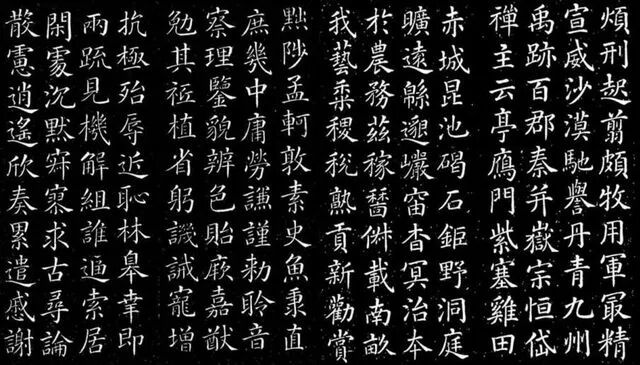 煩刑起翦頗牧用軍冣精
宣威沙漠馳譽丹青九州
禹跡百郡秦并嶽宗恒岱
禪主云亭鴈門紫塞雞田
赤城昆池碣石鉅野洞庭
曠遠緜邈巖岫杳冥治本
於農務茲稼穡俶載南畝
我藝黍稷稅熟貢新勸賞
黜陟孟軻敦素史魚秉直
庶幾中庸勞謙謹勅聆音
察理鑒貌辨色貽厥嘉猷
勉其祗植省躬譏誡寵增
抗極殆辱近恥林皋幸即
兩疏見機解組誰逼索居
閑處沉默寂寥求古尋論
散慮逍遙欣奏累遣慼謝